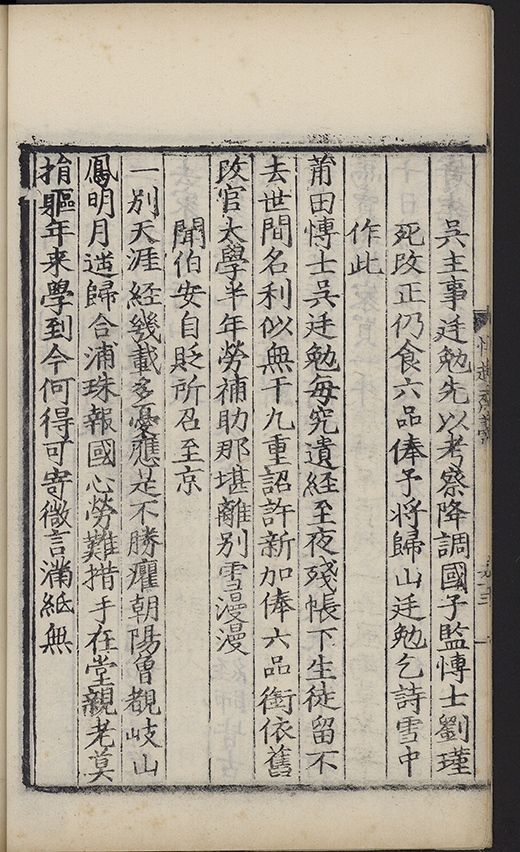 吳主事廷勉先以考察降調國子監愽士劉瑾
死改正仍食六品俸予將歸山廷勉乞詩雪中
作此
莆田愽士吳廷勉每究遺経至夜殘帳下生徒留不
去世間名利似無干九重詔許新加俸六品銜依舊
改官太學半年勞補助那堪離別雪漫漫
聞伯安自貶所召至京
一別天涯経幾載多憂應是不勝癯朝陽曾覩岐山
鳳明月遄歸合浦珠報國心勞難措手在堂親老莫
捐軀年来學到今何得可寄微言滿紙無